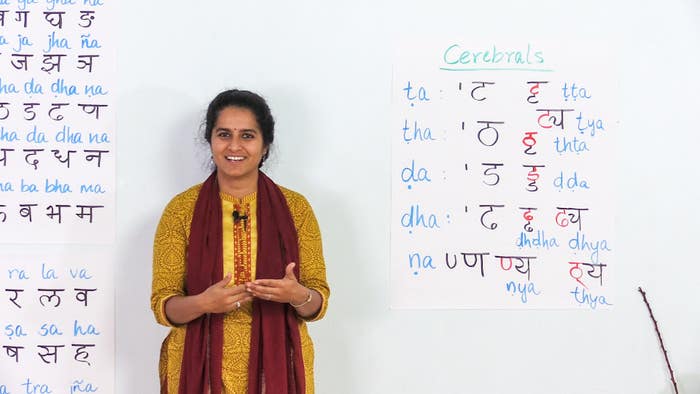 ga gha ṅa
ग घ ङ
ja jha ña
ज झ ञ
ḍa ḍha ṇa
ड ढ ण
tha da dha na
थ द ध न
ba bha ma
ब भ म
ra la va
र ल व
ṣa sa ha
ष स ह
tra jña
Cerebrals
ṭa : ' ट ट्ट ṭṭa
ट्य ṭya
ṭha : ' ठ ठ्ठ ṭhṭa
ḍa : ' ड ड्ड ḍḍa
ḍha : ' ढ ढ्ढ ढ्य
ḍhdha ḍhya
ṇa ण ण्य ठ्य
ṇya ṭhya